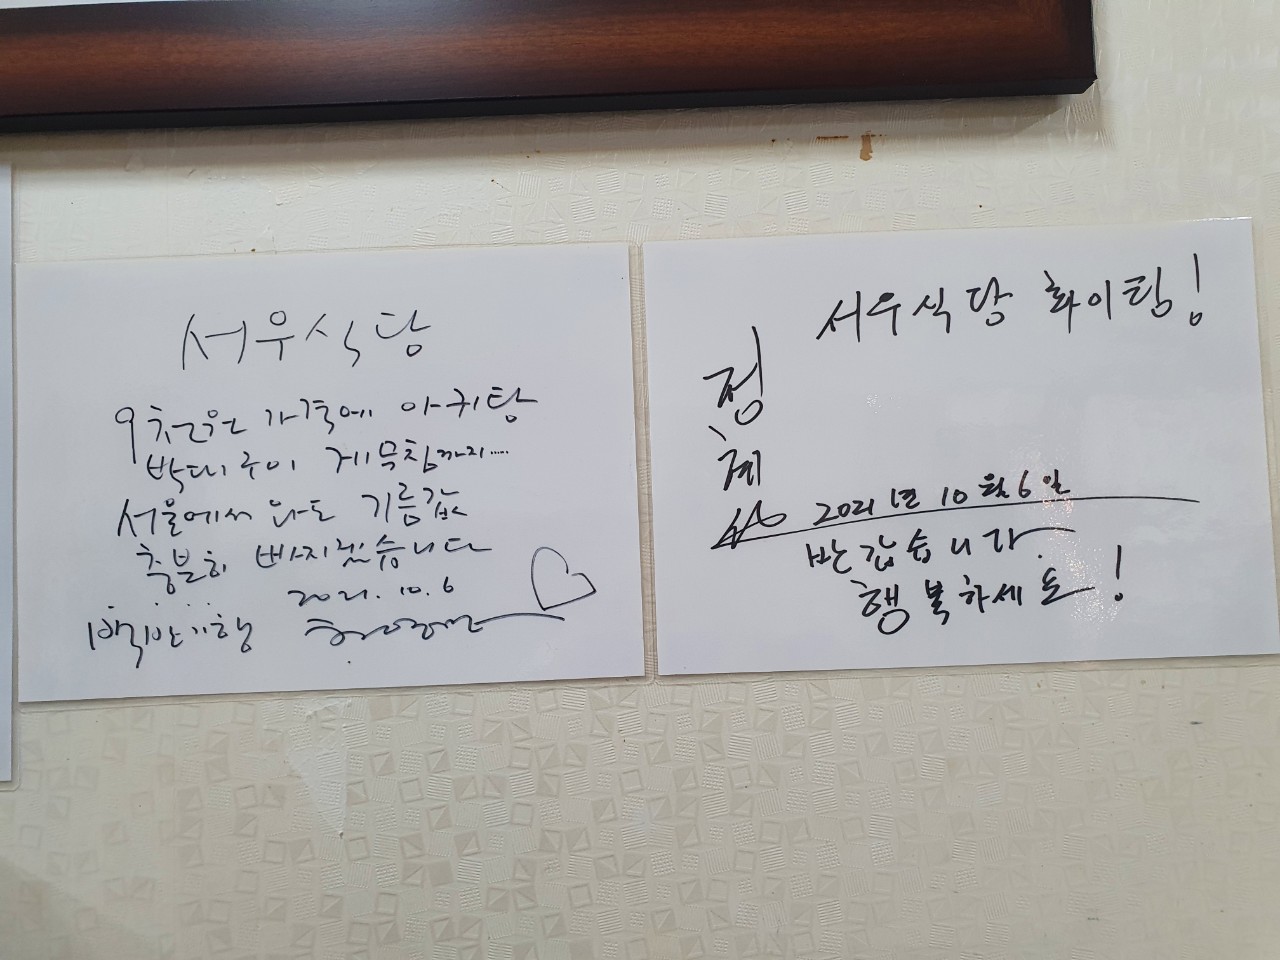 서우식당
9천원 가격에 아귀탕
박대구이 게무침까지.....
서울에서 와도 기름값
충분히 빠지겠습니다
2021. 10. 6
백반기행
서우식당 화이팅!
정혜
2021년 10월 6일
반갑습니다.
행복하세요!